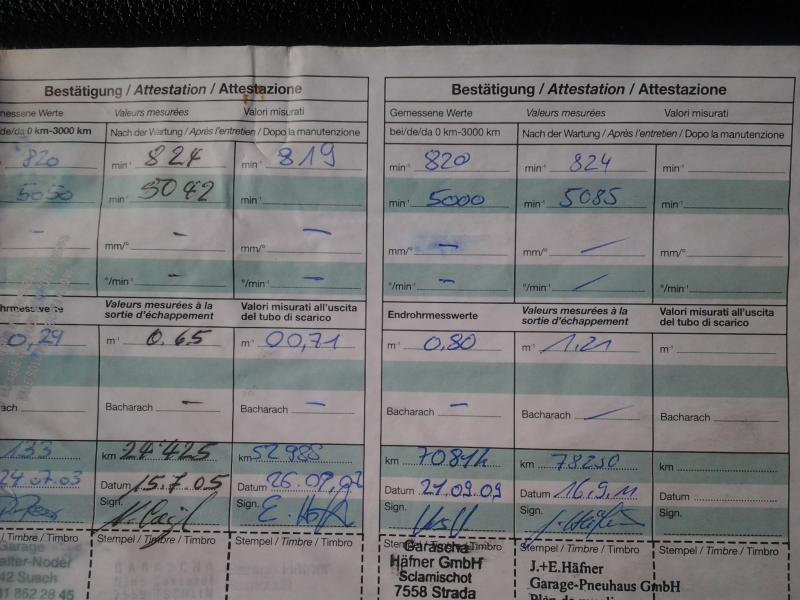 Bestätigung / Attestation / Attestazione
Bestätigung / Attestation / Attestazione
messene Werte Valeurs mesurées Valori misurati
Gemessene Werte Valeurs mesurées Valori misurati
de/da 0 km-3000 km Nach der Wartung / Après l'entretien / Dopo la manutenzione
bei/de/da 0 km-3000 km Nach der Wartung / Après l'entretien / Dopo la manutenzione
820 min⁻¹ 824 min⁻¹ 819
min⁻¹ 820 min⁻¹ 824 min⁻¹
5050 min⁻¹ 5042 min⁻¹
min⁻¹ 5000 min⁻¹ 5085 min⁻¹
– mm/° – mm/° –
mm/° – mm/° – mm/°
°/min⁻¹ – °/min⁻¹ –
°/min⁻¹ – °/min⁻¹ – °/min⁻¹
Valeurs mesurées à la sortie d'échappement Valori misurati all'uscita del tubo di scarico
Endrohrmesswerte Valeurs mesurées à la sortie d'échappement Valori misurati all'uscita del tubo di scarico
0,29 m⁻¹ 0.65 m⁻¹ 00,71
m⁻¹ 0,80 m⁻¹ 1,21 m⁻¹
arach Bacharach – Bacharach –
Bacharach – Bacharach – Bacharach
133 km 24'425 km 52988
km km 78250 km
24.07.03 Datum 15.7.05 Datum
Datum 21.09.09 Datum 16.9.11 Datum
Sign. Sign.
Sign. Sign. Sign.
Stempel / Timbre / Timbro Stempel / Timbre / Timbro
Stempel / Timbre / Timbro Stempel / Timbre / Timbro
Garage
42 Susch
862 28 45
Garascha
Häfner GmbH
Sclamischot
7558 Strada
J.+E.Häfner
Garage-Pneuhaus GmbH